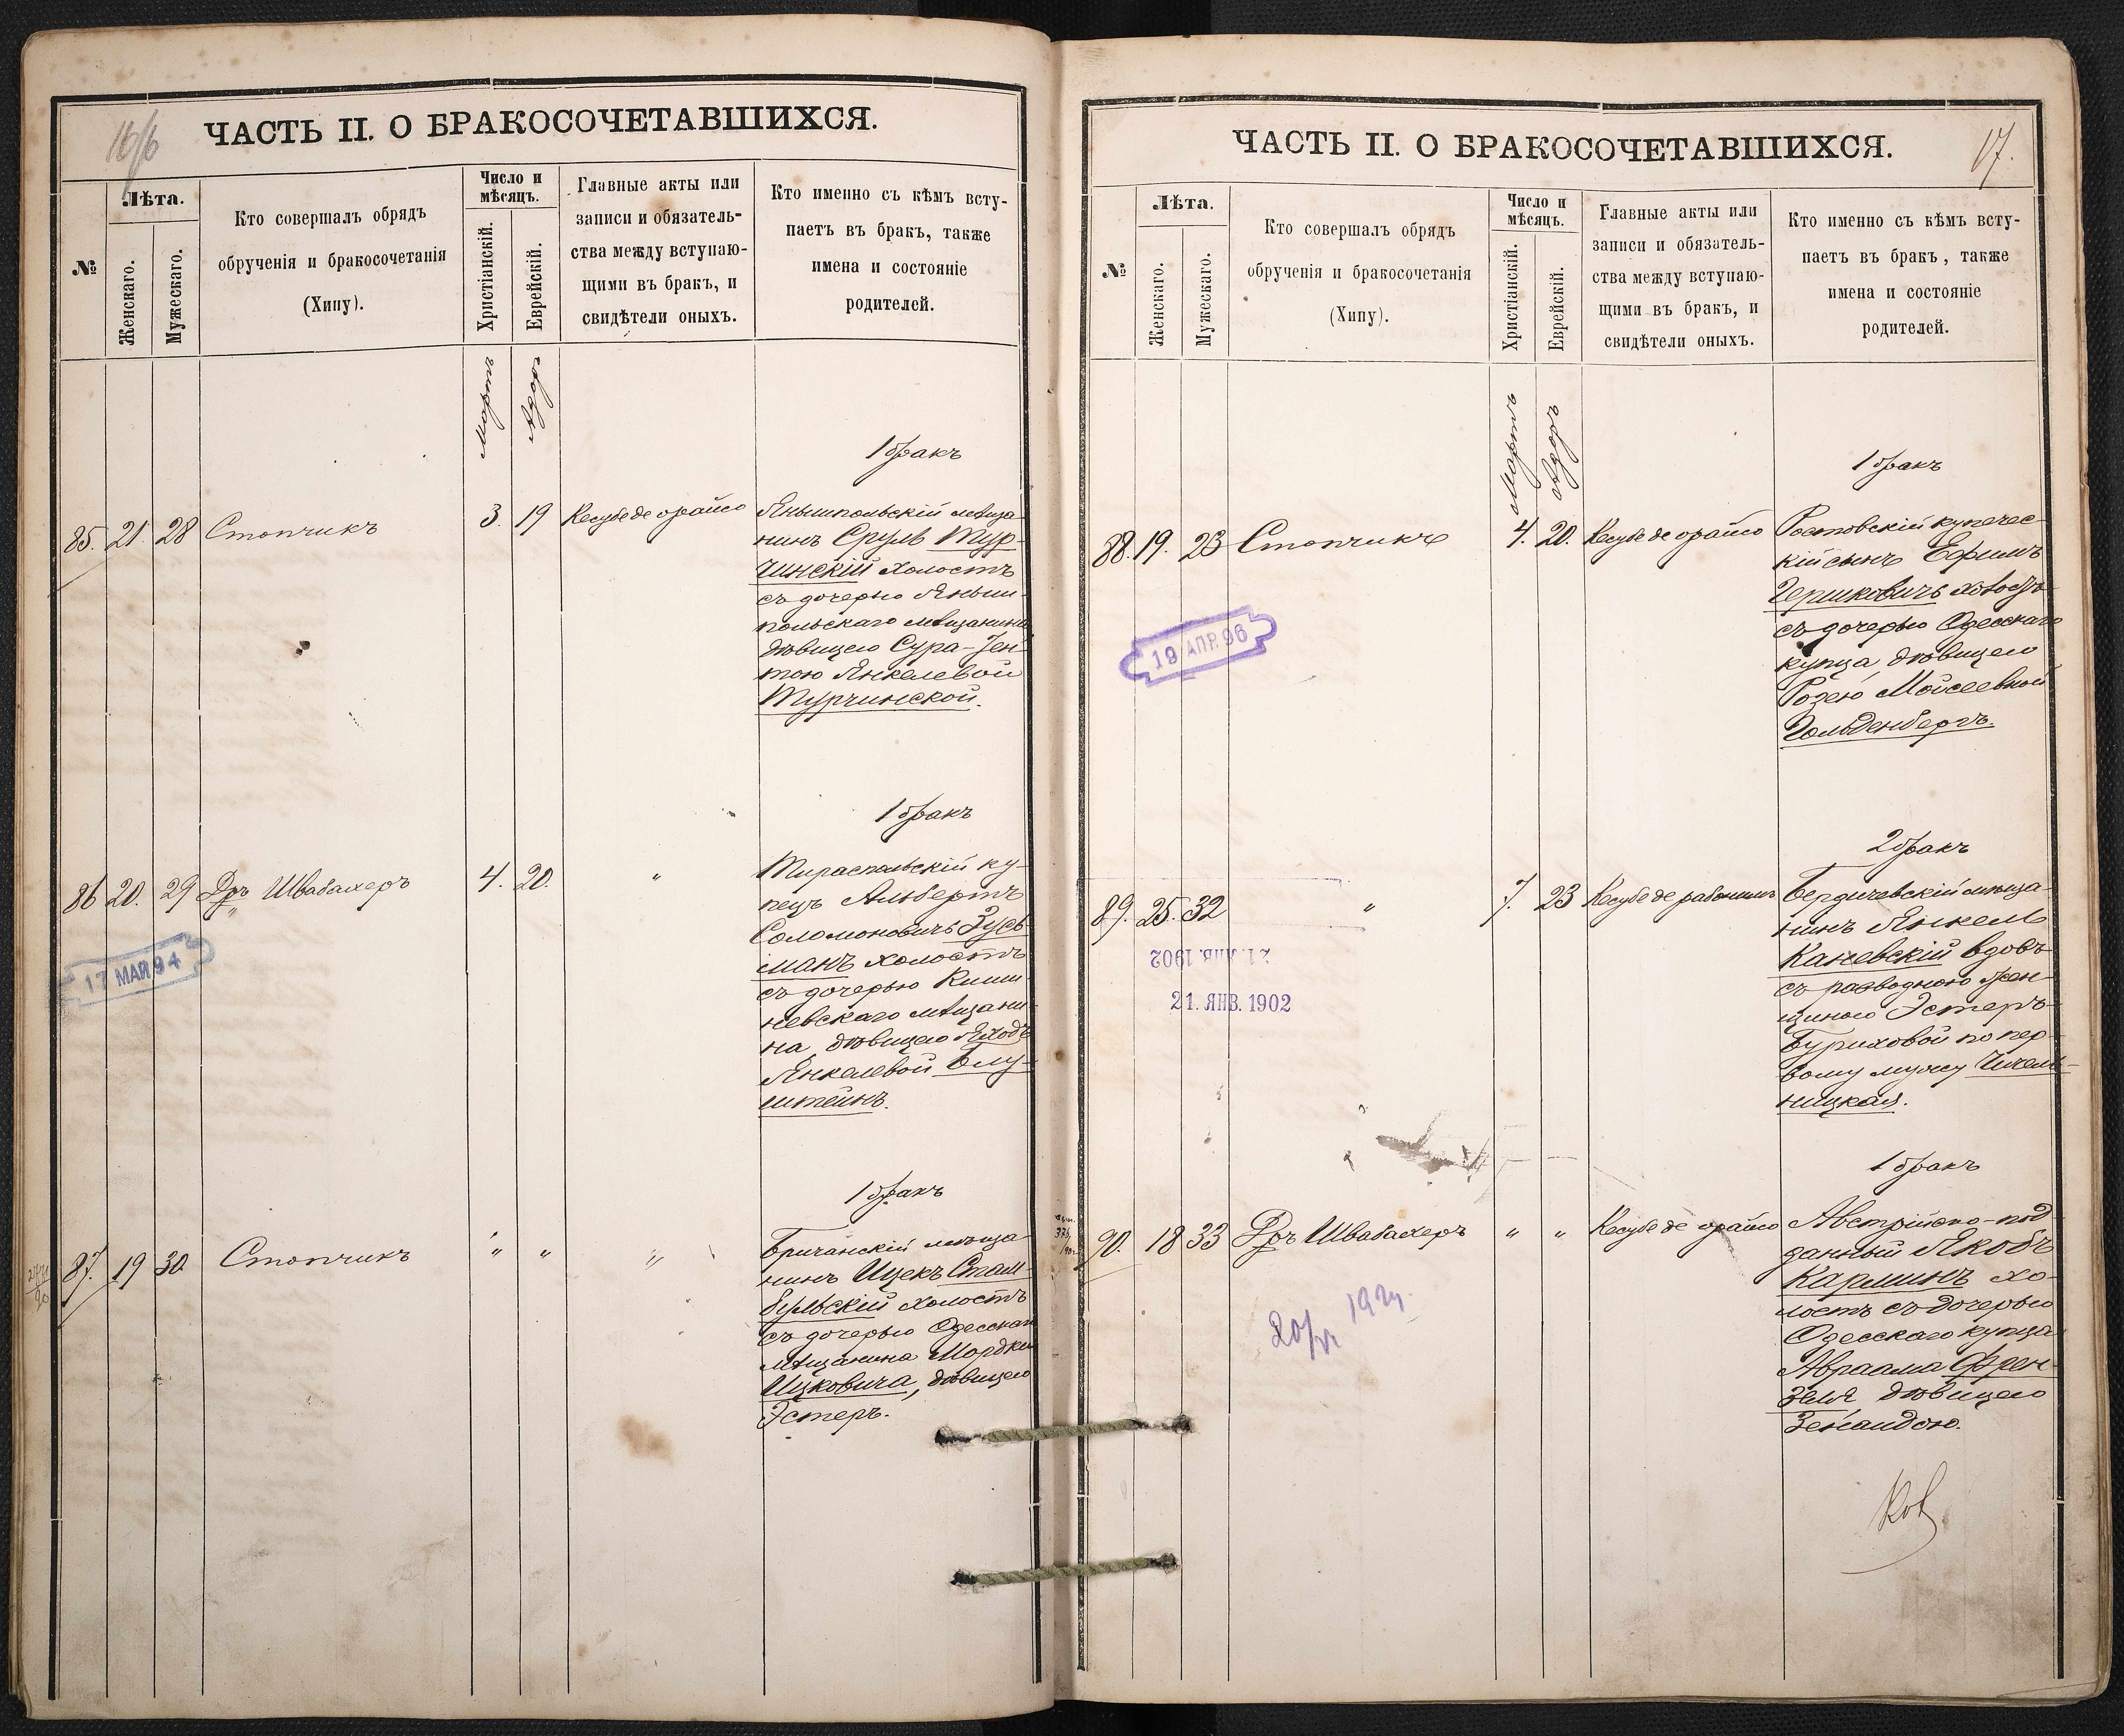 16/6
ЧАСТЬ II. О БРАКОСОЧЕТАВШИХСЯ.
№
Лѣта.
Женскаго.
Мужескаго.
Кто совершалъ обрядъ
обрученія и бракосочетанія
(Хипу).
Число и
мѣсяцъ.
Христіанскій.
Еврейскій.
Главные акты или
записи и обязатель-
ства между вступаю-
щими въ бракъ, и
свидѣтели оныхъ.
Кто именно съ кѣмъ всту-
паетъ въ бракъ, также
имена и состояніе
родителей.
Мартъ
Адоръ
1 бракъ
85. 21. 28 Стопчикъ 3. 19 Кесубе де орайсо
Янышпольскій мѣща-
нинъ Сруль Тур-
чинскій холостъ
съ дочерью Яныш-
польскаго мѣщанина
дѣвицею Сура-Ген-
тою Янкелевой
Турчинской.
1 бракъ
86 20. 29 Д-ръ Швабахеръ 4. 20. "
Тираспольскій ку-
пецъ Альбертъ
Соломоновичъ Зусь-
манъ холостъ
съ дочерью Киши-
невскаго мѣщани-
на, дѣвицею
Янкелевой Блу-
штейнъ.
17 МАЯ 94
1 бракъ
87. 19 30. Стопчикъ " " "
Бричанскій мѣща-
нинъ Ицекъ Стам-
бульскій холостъ
съ дочерью Одесскаго
мѣщанина Мордки
Ицковича, дѣвицею
Эстеръ.
17.
ЧАСТЬ II. О БРАКОСОЧЕТАВШИХСЯ.
№
Лѣта.
Женскаго.
Мужескаго.
Кто совершалъ обрядъ
обрученія и бракосочетанія
(Хипу).
Число и
мѣсяцъ.
Христіанскій.
Еврейскій.
Главные акты или
записи и обязатель-
ства между вступаю-
щими въ бракъ, и
свидѣтели оныхъ.
Кто именно съ кѣмъ всту-
паетъ въ бракъ, также
имена и состояніе
родителей.
Мартъ
Адоръ
1 бракъ
88. 19. 23 Стопчикъ 4. 20. Кесубе де орайсо
Ростовскій купечес-
кій сынъ Ефимъ
Гершковичъ холостъ
съ дочерью Одесскаго
купца, дѣвицею
Розею Мойсеевной
Гольденбергъ.
19 АПР. 96
2 бракъ
89. 25. 32 " 7. 23 Кесубе де рабонимъ
Бердичевскій мѣща-
нинъ Янкель
Каневскій вдовъ
съ разводною жен-
щиною Эстеръ
Буриховой по пер-
вому мужу Чичель-
ницкая.
21. ЯНВ. 1902
21. ЯНВ. 1902
1 бракъ
90. 18 33 Д-ръ Швабахеръ " " Кесубе де орайсо
Австрійско-под-
данный Якобъ
Карминъ хо-
лостъ съ дочерью
Одесскаго купца
Авраама Френ-
зеля дѣвицею
Зенаидою.